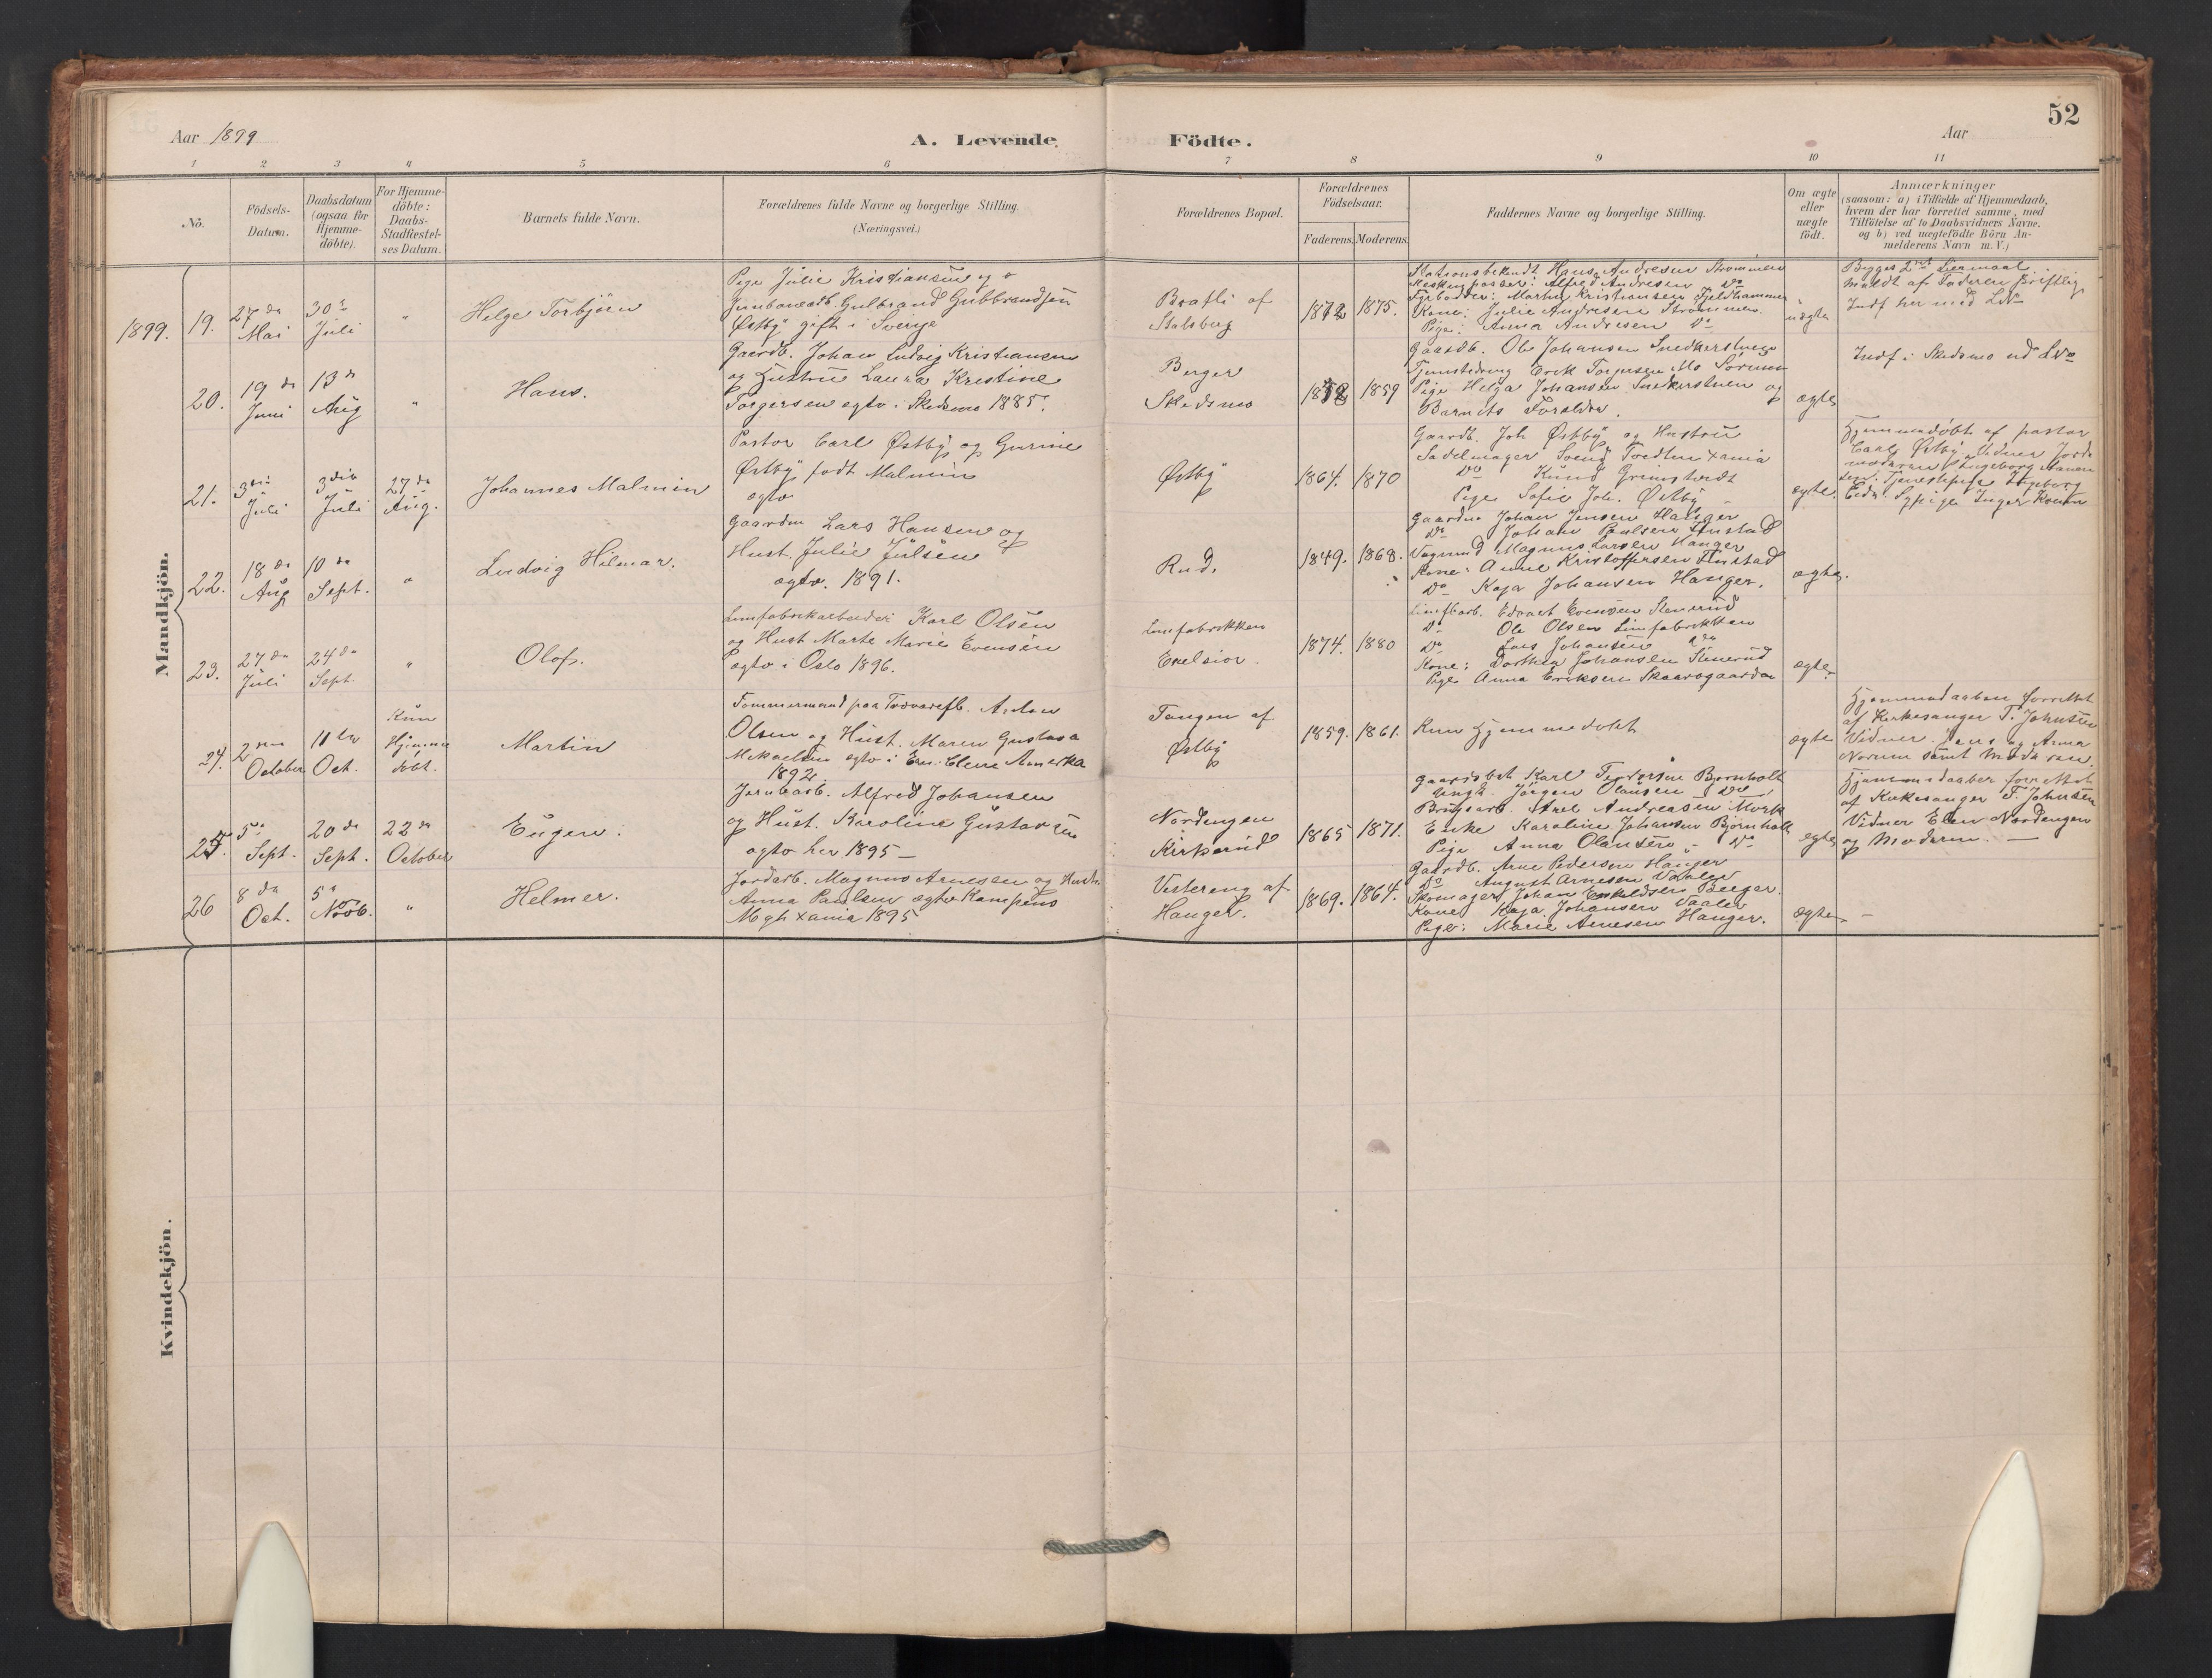 52
Aar 1899
A. Levende
Födte.
Aar
1 2 3 4 5 6 7 8 9 10 11
No.
Födsels-Datum.
Daabsdatum (ogsaa for Hjemme-döbte).
For Hjemme-döbte: Daabs-Stadfæstel-ses Datum.
Barnets fulde Navn.
Forældrenes fulde Navne og borgerlige Stilling.
(Næringsvei.)
Forældrenes Bopæl.
Forældrenes Födselsaar.
Faderens. Moderens.
Faddernes Navne og borgerlige Stilling.
Om ægte eller uægte födt.
Anmærkninger
(saasom: a) i Tilfælde af Hjemmedaab,
hvem der har forrettet samme, med
Tilföielse af to Daabsvidners Navne.
og b) ved uægtefödte Börn An-
melderens Navn m. V.)
Mandkjön.
1899.
19.
27de Mai
30te Juli
"
Helge Torbjörn
Pige Julie Kristiansen og
Gulbrand Gulbrandsen
Østby gift i Sverige
Braatli af
Stalsberg
1872
1875.
Stationsbetjendt Hans Andresen Strømmen
Alfred Andresen Do
Martin Kristiansen Fjeldhammer
Kone: Julie Andresen Strømmen
Pige: Anna Andresen Do
uægte
2det Leiermaal
Meldt af Faderen skriftlig
Indf her med LN
20.
19de Juni
13de Aug
"
Hans.
Gaardb. Johan Ludvig Kristiansen
og Hustru Laura Kristine
Torgersen egtv. i Skedsmo 1885.
Berger
Skedsmo
1859
Gaardb. Ole Johansen Snedkerstuen
Erik Torgersen Mo Sørum
Pige Helga Johansen Snekerstuen og
Barnets Forældre.
ægte
Indf i Skedsmo ud LNo
21.
3die Juli
3die Juli
27de Aug.
Johannes Malmin
Pastor Carl Østby og Gurine
Østby født Malmin
egtv
Østby
1864.
1870
Gaardb. Joh Østby og Hustru
Sadelmager Svend Tvedten Xania
Do Knud Grimstvedt
Pige Sofie Joh. Østby
ægte.
Hjemmedøbt af pastor
Carl Østby Vidner Jorde
moderen Ingeborg Hansen
Tjenestepige Ingeborg
Sypige Inger
22.
18de Aug
10de Sept.
"
Ludvig Hilmar.
Gaardm Lars Hansen og
Hust. Julie Julsen
egtv. 1891.
Rud.
1849.
1868.
Gaardm Johan Jensen Hanger
Do Johan Paulsen Finstad
Magnus Larsen Hanger
Kone: Anne Kristoffersen Finstad
Do Kaja Johansen Hanger.
ægte.
23.
27de Juli
24de Sept.
"
Olof.
Limfabrikarbeider Karl Olsen
og Hust Marte Marie Evensen
egtv i Oslo 1896.
Limfabrikken
Exelsior.
1874.
1880
Limfbarb. Edvart Evensen Stenerud
Do Ole Olsen Limfabrikken
Do Lars Johansen Do
Kone: Dorthea Johansen Stenerud
Pige Anna Eriksen Skaarsgaarden
ægte
24.
2den October
11te Oct.
Kun Hjemme döbt.
Martin
Tømmermand paa Trævarefb. Anton
Olsen og Hust. Maren Gustava
Mikaelsen egtv i Clere Amerika
1892.
Tangen af
Østby
1859.
1861.
Kun Hjemmedøbt
ægte
Hjemmedaaben forrettet
af Kirkesanger T. Johnsen
Vidner Jens og Anna
samt Moderen.
25.
5te Sept.
20de Sept.
22de October
Eugen.
Jernbarb. Alfred Johansen
og Hust. Karoline Gustavsen
egtv her 1895 —
Nordengen
Kirkerud
1865
1871.
Karl Bjørnholt
Ungk. Jörgen Olausen Do
Axel Andreasen Mork
Enke Karoline Johansen Bjørnholt
Pige Anna Olausen Do
ægte
Hjemmedaaben forrettet
af Kirkesanger T. Johnsen
Vidner Ellen Nordengen
og Moderen. —
26
8de Oct.
5te Novb.
"
Helmer.
Jordarb. Magnus Arnesen og Hust.
Anna Paulsen egtv Kampens
Mgh Xania 1895
Vestereng af
Hanger.
1869.
1864.
Gaardb. Arne Pedersen Hanger
Do August Arnesen Vaaler
Skomager Johan Berger.
Kone Kaja Johansen Vaaler
Pige: Marie Arnesen Hanger.
ægte —
Kvindekjön.